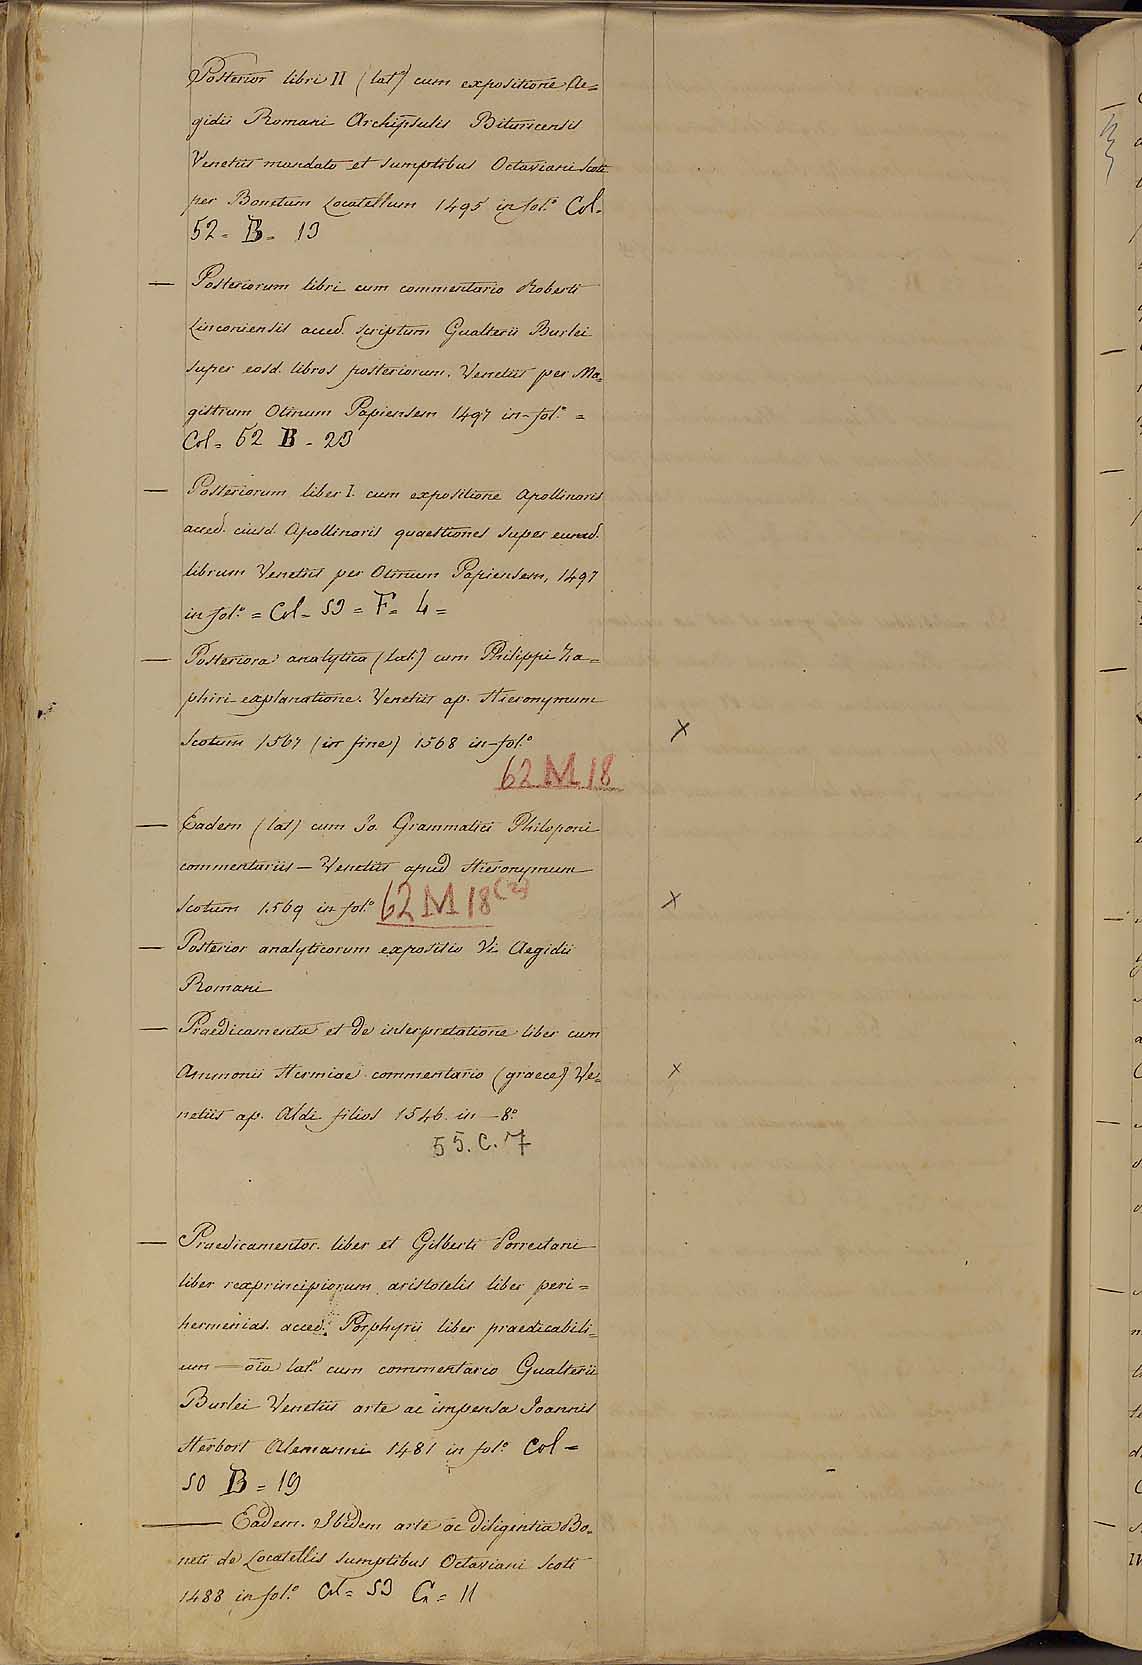 Posterior libri II (lat.) cum expositione Ae=
gidii Romani Archipsulis Bituricensis
Venetiis mandato et sumptibus Octaviani Scoti
per Bonetum Locatellum 1495 in fol.° Col.
52 = B = 13
— Posteriorum libri cum commentario Roberti
Linconiensis acced. scriptum Gualterii Burlei
super eosd. libros posteriorum. Venetiis per Ma=
gistrum Otinum Papiensem 1497 in-fol.° =
Col = 52 B - 23
— Posteriorum liber I. cum expositione Apollinaris
acced. eiusd. Apollinaris quaestiones super eumd.
librum Venetiis per Otinum Papiensem, 1497
in fol.° = Col = 53 = F = 4 =
— Posteriora analytica (lat.) cum Philippi Za=
phiri explanatione. Venetiis ap. Hieronymum
Scotum 1567 (in fine) 1568 in-fol.° X
62 M 18
— Eadem (lat) cum Jo. Grammatici Philoponi
commentariis — Venetiis apud Hieronymum
Scotum 1569 in fol.° 62 M 18 (2) X
— Posterior analyticorum expositio Vi. Aegidii
Romani
— Praedicamenta et de interpretatione liber cum
Ammonii Hermiae commentario (graece) Ve= X
netiis ap. Aldi filios 1546 in — 8.°
55. C. 7
— Praedicamentor. liber et Gilberti Porretani
liber rexprincipiorum aristotelis liber peri=
hermenias. acced. Porphyrii liber praedicabili=
um — oia lat.e cum commentario Gualterii
Burlei Venetiis arte ac impensa Joannis
Herbort Alemanni 1481 in fol.° Col =
50 B = 19
— Eadem. Ibidem arte ac diligentia Bo=
neti de Locatellis sumptibus Octaviani Scoti
1488 in fol.° Col = 53 G = 11